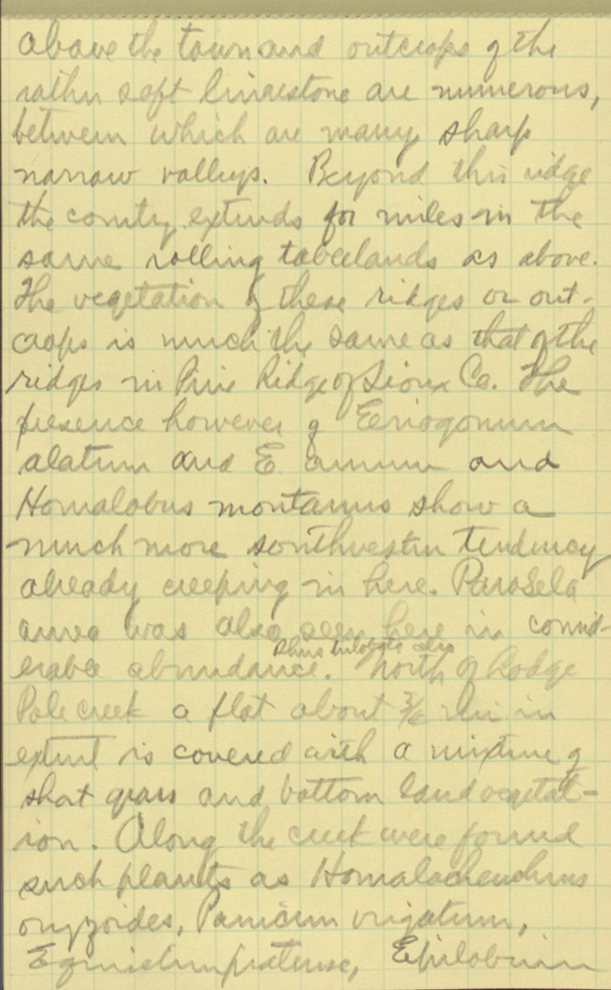 above the town and outcrops of the
rather soft limestone are numerous,
between which are many sharp
narrow valleys. Beyond this ridge
the country extends for miles in the
same rolling tablelands as above.
The vegetation of these ridges or out-
crops is much the same as that of the
ridges in Pine Ridge of Sioux Co. The
presence however of Eriogonum
alatum and E. annuum and
Homalobus montanus show a
much more southwestern tendency
already creeping in here. Parosela
aurea was also seen here in consid-
erable abundance. Rhus trilobata also
North of Lodge
Pole creek a flat about mi in
extent is covered with a mixture of
short grass and bottom land vegetat-
ion. Along the creek were found
such plants as Homalocenchrus
oryzoides, Panicum virgatum,
Equisetum pratense, Epilobium